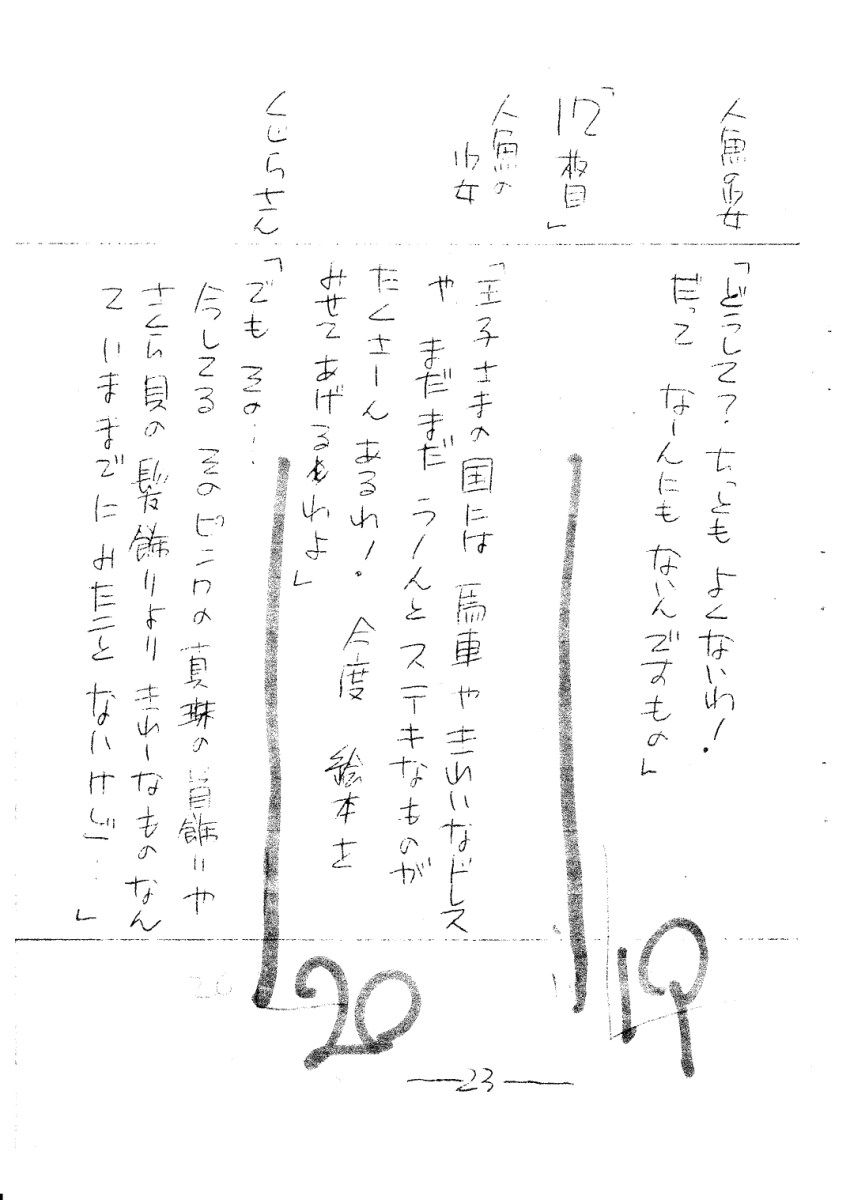 人魚の少女
「どうして？ちっとも よくないわ！
だって なーんにも ないんですもの」
「17枚目」
人魚の
少女
「王子さまの国には 馬車やきれいなドレス
や まだまだ うーんとステキなものが
たくさーん あるわ！ 今度 絵本を
みせてあげるわよ」
くじらさん
「でも その…
今してる そのピンクの真珠の首飾りや
さくら貝の髪飾りより きれーなものなん
て いままでに みたこと ないけど…」
19
20
20
—23—